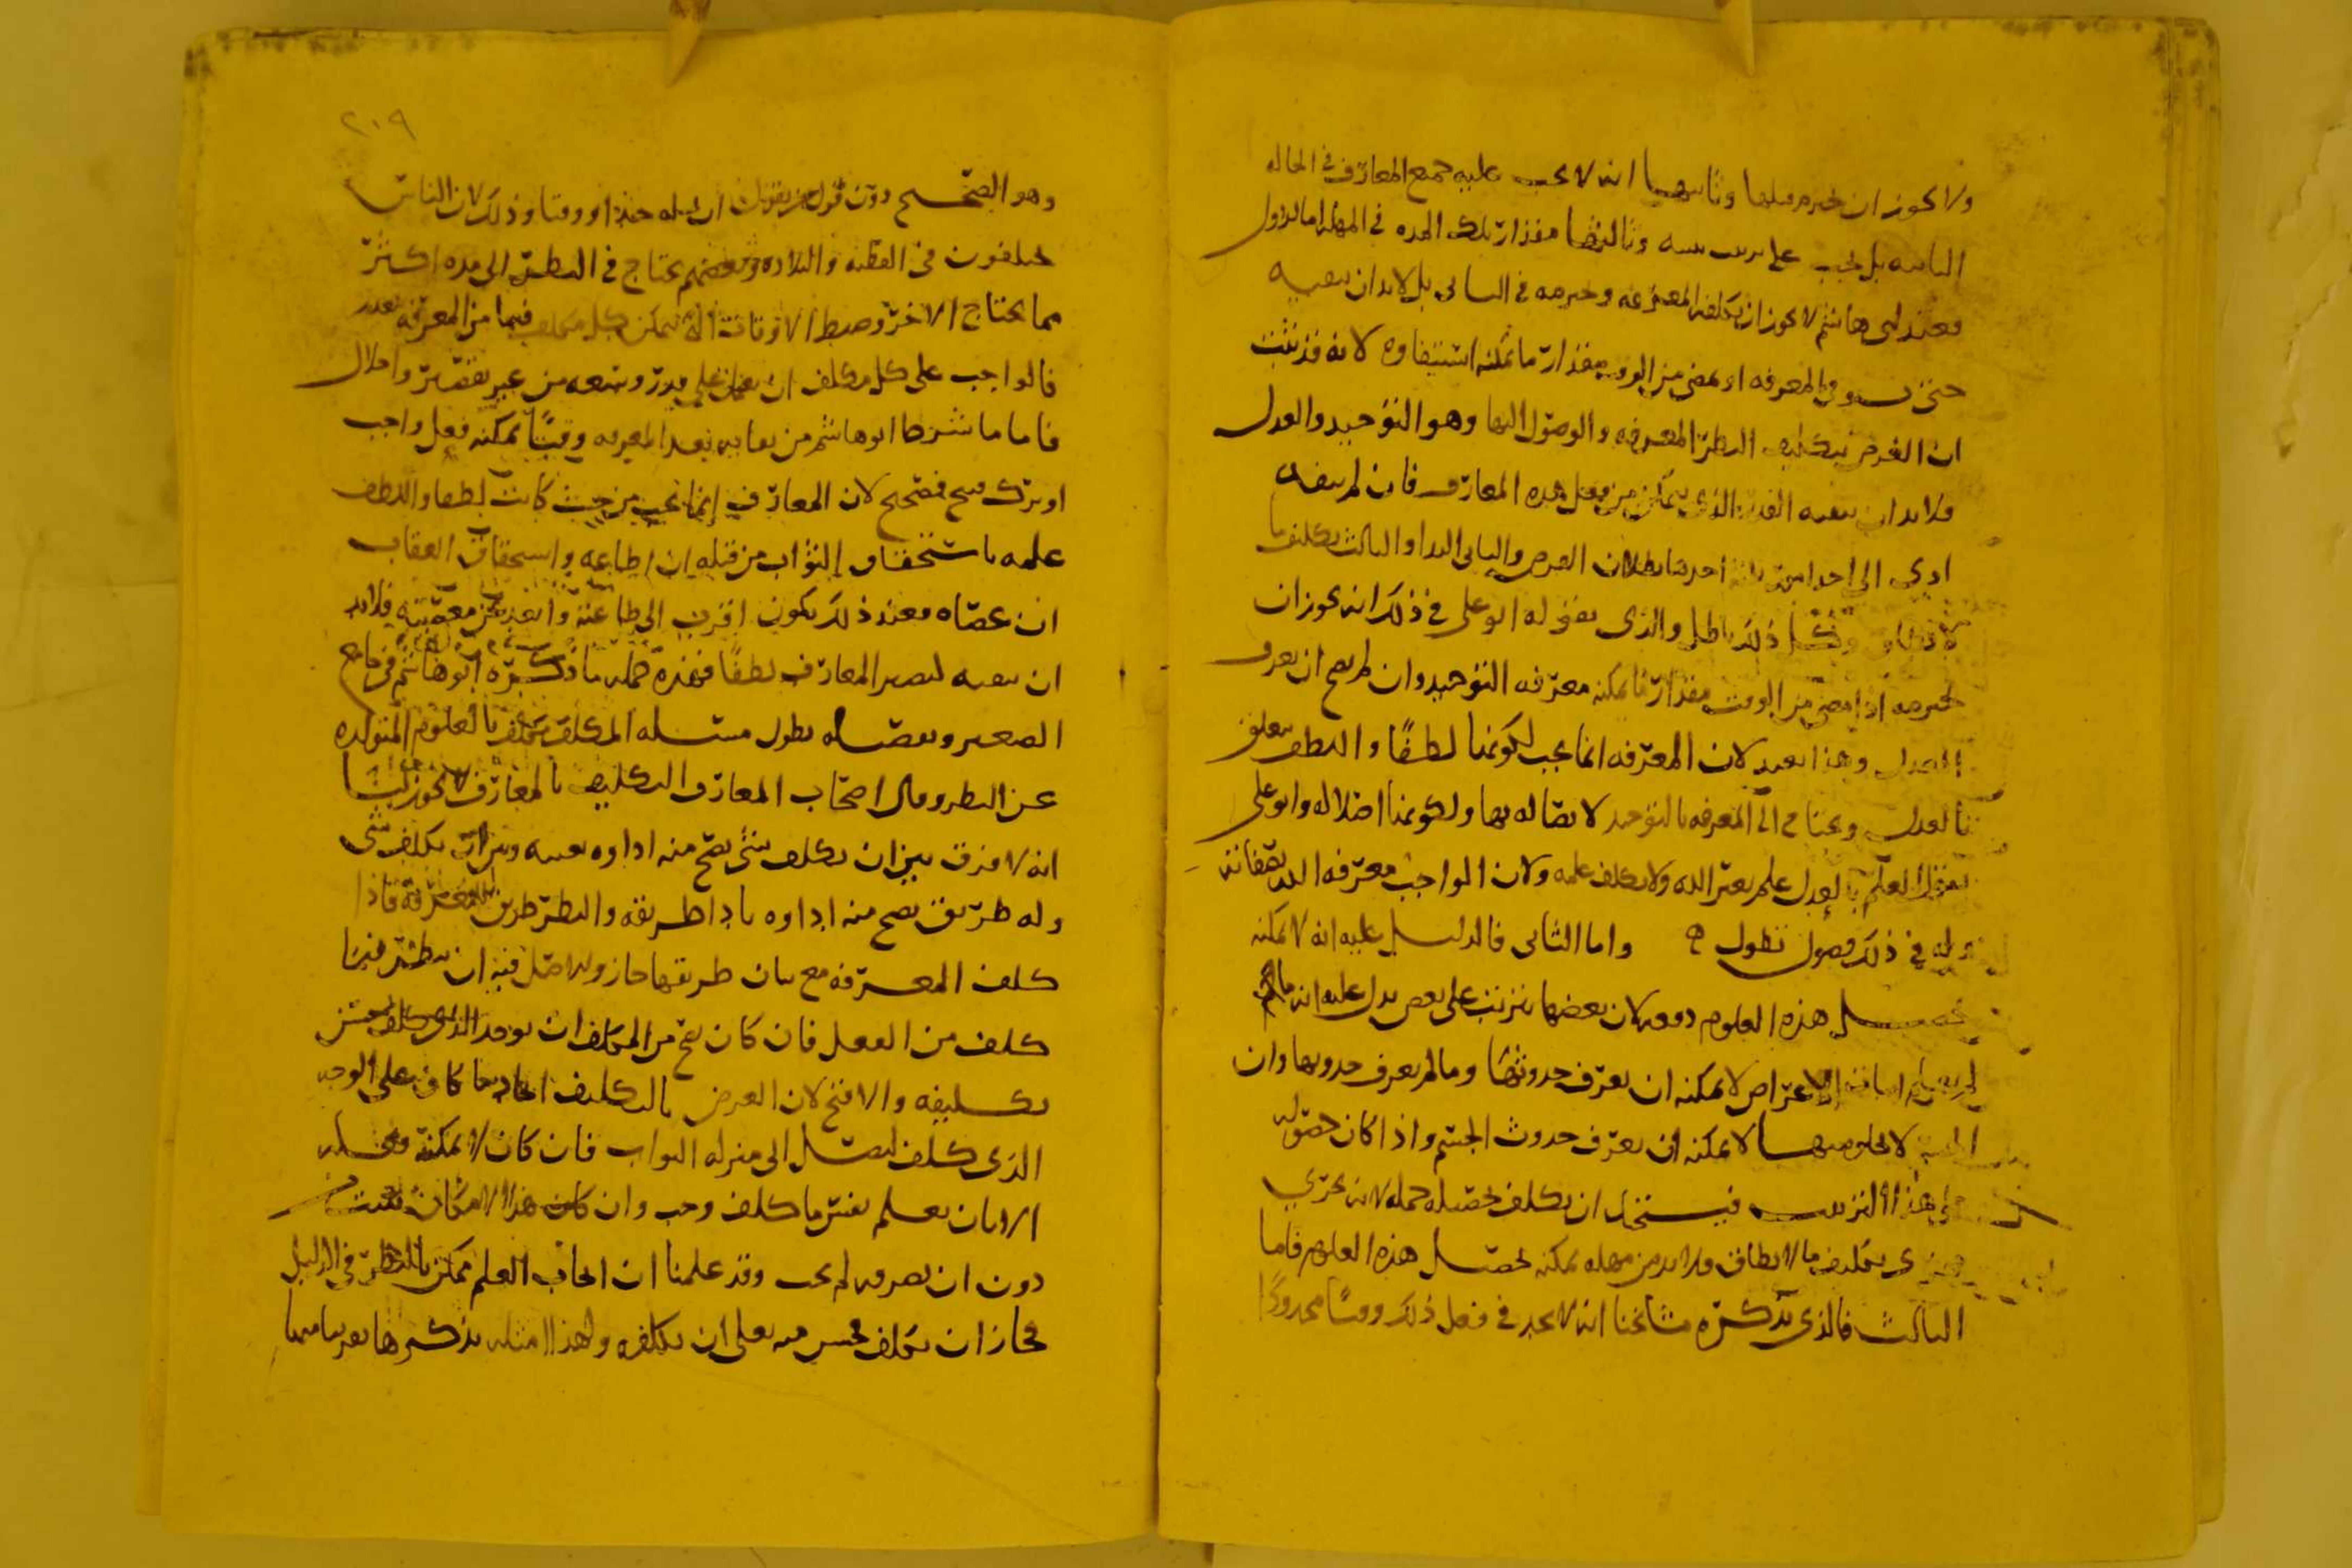 ولا يجوز ان يخترم قبلها وثانيها انه لا يجب عليه جميع المعارف في الحالة
الثانية بل يجب على ترتيب وثالثها مقدار تلك المدة في المهلة اما الاول
فعند ابي هاشم لا يجوز ان يكلفه المعرفة ويخترمه في الثاني بل لا بد ان يبقيه
حتى المعرفة او يمضي من الوقت مقدار ما يمكنه استيفاؤه لانه قد ثبت
ان الغرض بتكليف النظر المعرفة والوصول اليها وهو التوحيد والعدل
فلا بد ان يبقيه القدر الذي يتمكن من فعل هذه المعارف فان لم يبقه
ادى الى احد امور ثلاثة احدها بطلان الغرض والثاني البدا والثالث تكليف ما
لا يطاق وكل ذلك باطل والذي يقوله ابو علي في ذلك انه يجوز ان
يخترمه اذا مضى من الوقت مقدار ما يمكنه معرفة التوحيد وان لم يصح ان يعرف
العدل وهذا بعيد لان المعرفة انما يجب لكونها لطفا واللطف يتعلق
بالعدل ويحتاج الى المعرفة بالتوحيد لاتصاله بها ولكونها اصلا له وابو علي
العلم بالعدل علم بغير الله ولا يكلف علمه ولان الواجب معرفة الله بصفاته
وله في ذلك فصول تطول واما الثاني فالدليل عليه انه لا يمكنه
تحصيل هذه العلوم دفعة لان بعضها يترتب على بعض يدل عليه انه ما لم
يعلم اثبات الاعراض لا يمكنه ان يعرف حدوثها وما لم يعرف حدوثها وان
الجسم لا يخلو منها لا يمكنه ان يعرف حدوث الجسم واذا كان حصوله
على هذا الترتيب فيستحيل ان يكلف تحصيله جملة لانه يجري
مجرى تكليف ما لا يطاق فلا بد من مهلة يمكنه تحصيل هذه العلوم فاما
الثالث فالذي يذكره مشائخنا انه لا يحد في فعل ذلك وقتا محدودا
٢٠٩
وهو الصحيح دون قول من يقول ان له حدا او وقتا وذلك لان الناس
يختلفون في الفطنة والبلادة وبعضهم يحتاج في النظر الى مدة اكثر
مما يحتاج الاخر وضبط الاوقات التي يتمكن كل مكلف فيها من المعرفة يتعذر
فالواجب على كل مكلف ان على قدر وسعه من غير تقصير واخلال
فاما ما شرط ابو هاشم من بقائه بعد المعرفة وقتا يمكنه فعل واجب
او ترك قبيح فصحيح لان المعارف انما يجب من حيث كانت لطفا واللطف
علمه باستحقاق الثواب من قبله ان اطاعه واستحقاق العقاب
ان عصاه فعند ذلك يكون اقرب الى طاعته وابعد من معصيته فلا بد
ان يبقيه لتصير المعارف لطفا فهذه جملة ما ذكره ابو هاشم في جامع
الصغير وتفصيله يطول مسئلة المكلف تكلف بالعلوم المتولدة
عن النظر وقال اصحاب المعارف التكليف بالمعارف لا يجوز لنا
انه لا فرق بين ان يكلف شيء يصح منه اداؤه بعينه وبين ان يكلف شيء
وله طريق يصح منه اداؤه باداء طريقه والنظر طريق للمعرفة فاذا
كلف المعرفة مع بيان طريقها جاز والاصل فيه ان ينظر فيما
كلف من الفعل فان كان يصح من المكلف ان يوجد الذي كلف حسن
تكليفه والا قبح لان الغرض بالتكليف ايجاد ما كلف على الوجه
الذي كلف ليصل الى منزلة الثواب فان كان لا يمكنه فعله
الا بان يعلم نفس ما كلف وجب وان كان هذا الامكان يثبت من
دون ان يعرفه لم يجب وقد علمنا ان ايجاب العلم ممكن بالنظر في الدليل
فجاز ان يكلف فحسن منه تعالى ان يكلفه ولهذا امثلة نذكرها تقريبا منها